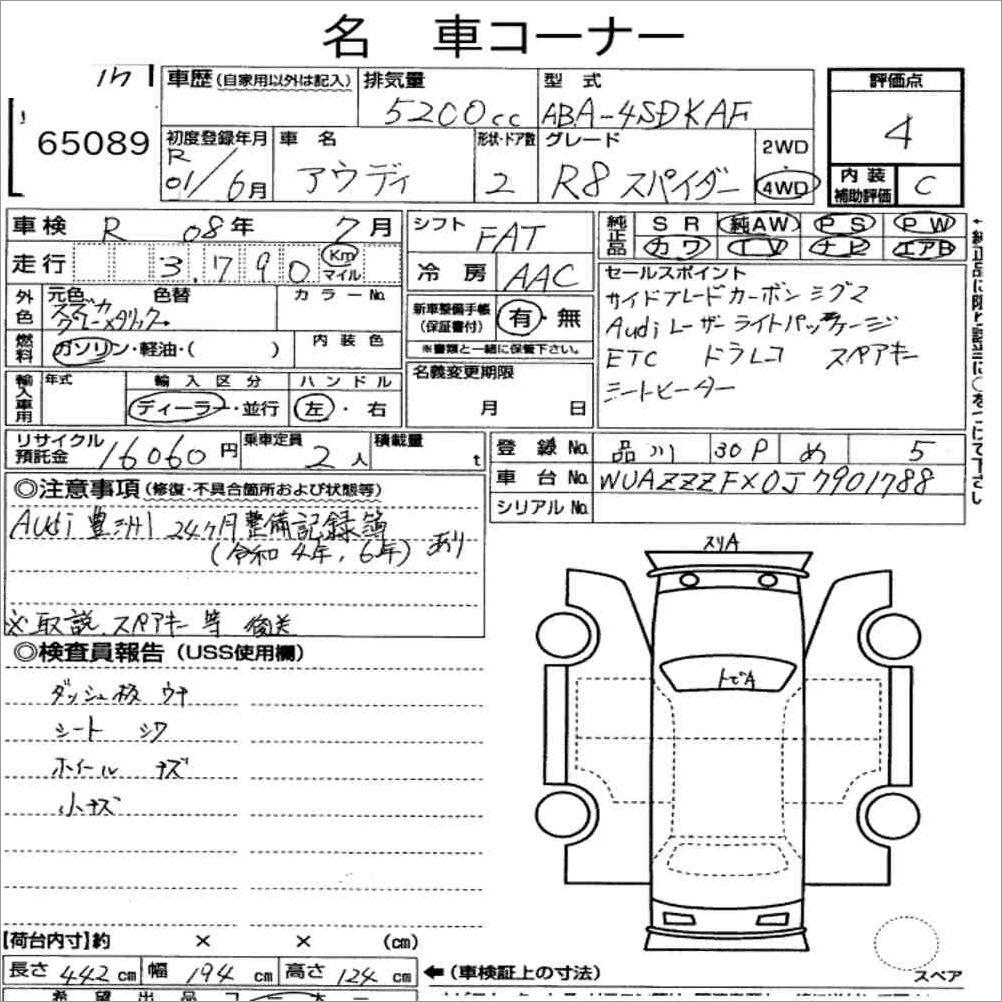 名 車コーナー
65089
車歴(自家用以外は記入) 排気量 5200cc 型式 ABA-4SDKAF 評価点 4
初度登録年月 R 01/6月 車名 アウディ 形状・ドア数 2 グレード R8 スパイダー 2WD・4WD
内装補助評価 C
車検 R 08年 7月
走行 3,790 Km マイル
外色 元色 スズカグレーメタリック 色替 カラーNo.
燃料 ガソリン・軽油・( ) 内装色
輸入車用 年式 輸入区分 ディーラー・並行 ハンドル 左・右
シフト FAT
冷房 AAC
新車整備手帳(保証書付) 有・無
※書類と一緒に保管下さい。
名義変更期限 月 日
純正品 SR 純AW PS PW
カワ TV ナビ エアB
セールスポイント
サイドブレードカーボンシグマ
Audiレーザーライトパッケージ
ETC ドラレコ スペアキー
シートヒーター
リサイクル預託金 16060円 乗車定員 2人 積載量 t
登録No. 品川 30P め 5
車台No. WUAZZZFX0J7901788
シリアルNo.
◎注意事項(修復・不具合箇所および状態等)
Audi 豊洲 24ヶ月整備記録簿
(令和4年,6年) あり
※取説、スペアキー等 後送
◎検査員報告(USS使用欄)
ダッシュ板 ウキ
シート シワ
ホイール キズ
小キズ
スリA
トビA
スペア
【荷台内寸】約 × × (cm)
長さ 442cm 幅 194cm 高さ 124cm ←(車検証上の寸法)